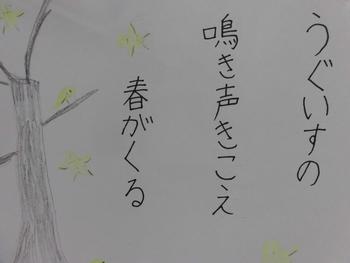 うぐいすの
鳴き声きこえ
春がくる